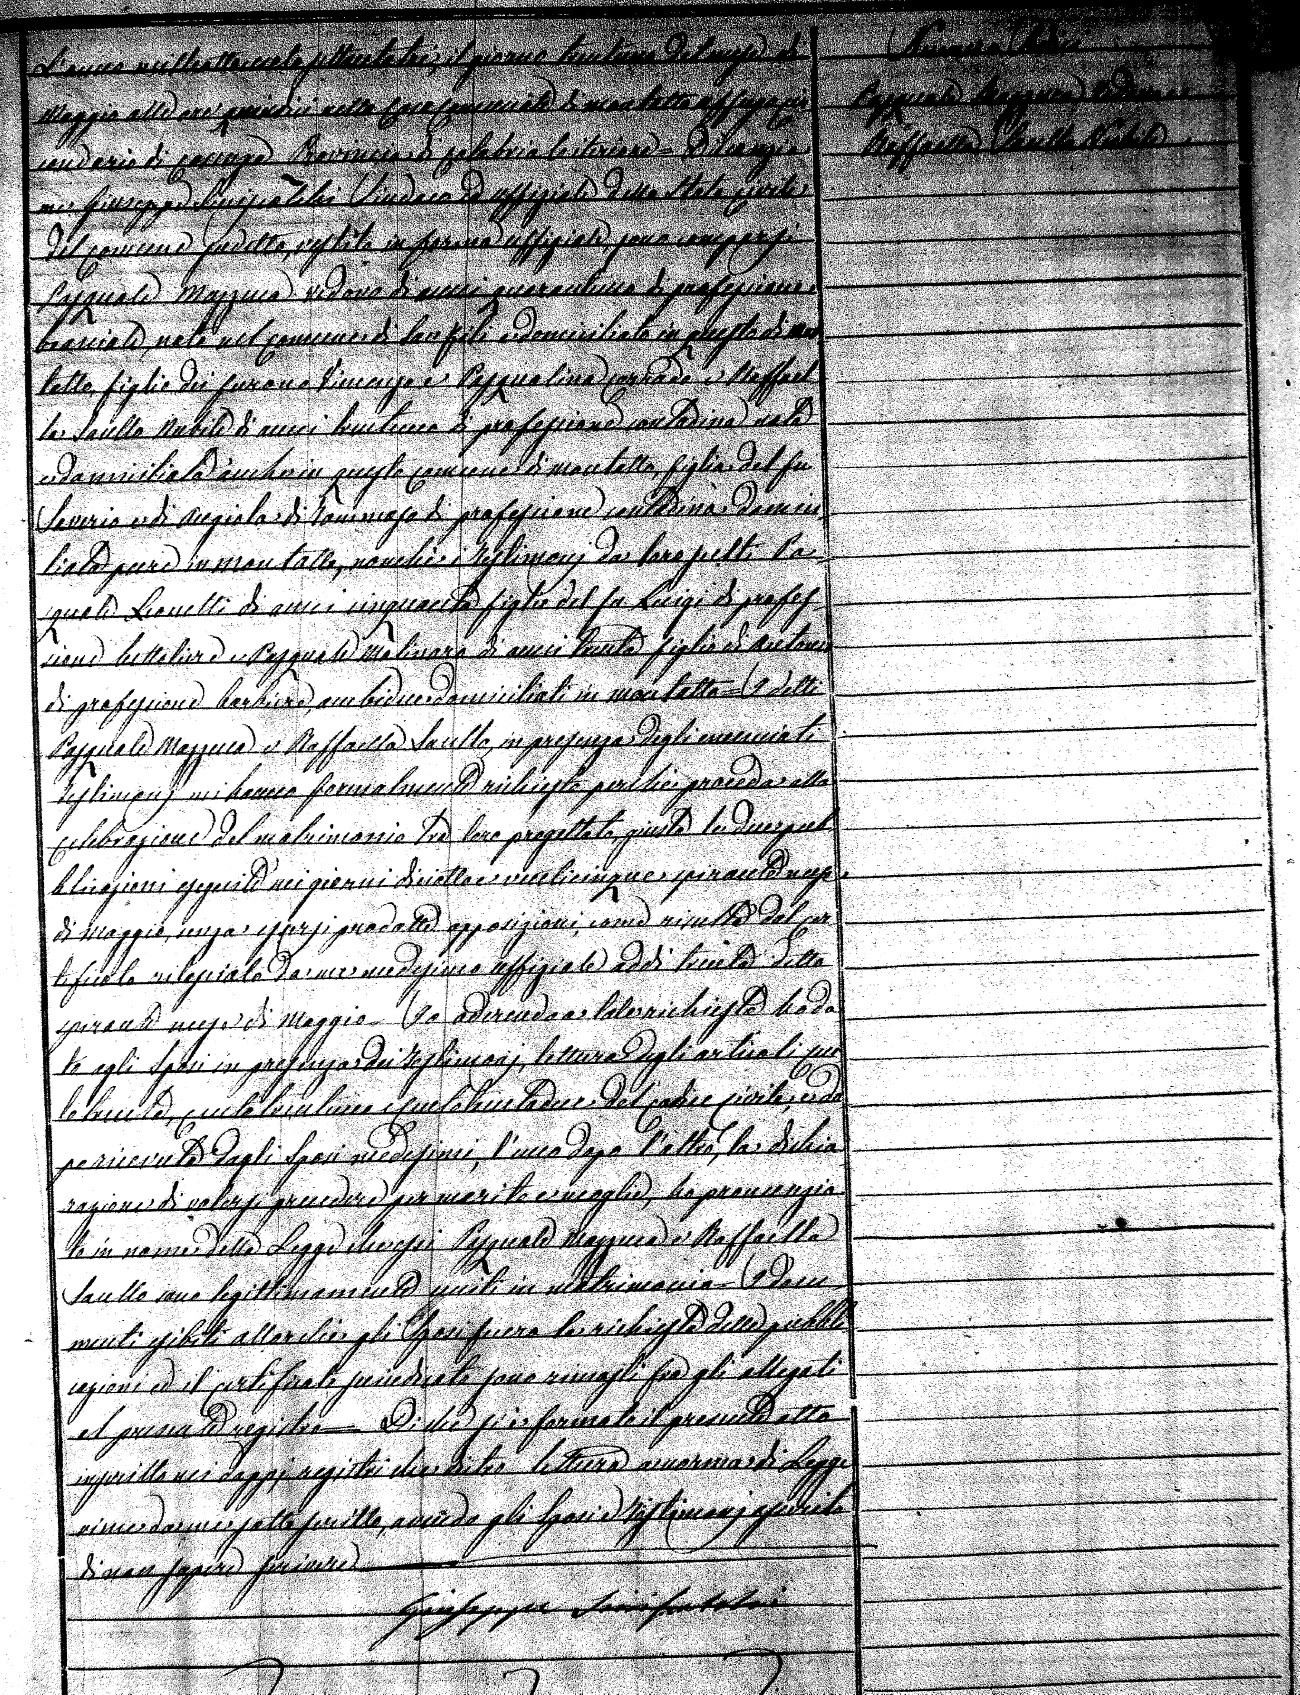 L'anno milleottocento settantatre, il giorno trentuno del mese di
Maggio alle ore quindici nella Casa Comunale di Montalto Uffugo, cir
condario di Cosenza Provincia di Calabria Citeriore = Dinanzi
me Giuseppe Sindaco ed uffiziale dello Stato Civile
del Comune sudetto, vestito in forma uffiziale, sono comparsi
Pasquale Mazzuca vedovo di anni quarantuno di professione
bracciale, nato nel Comune di San Fili e domiciliato in questo di Mon
talto figlio dei furono Vincenzo e Pasqualina Corrado e Raffael
la Saullo Nubile di anni trentuno di professione contadina nata
e domiciliata anche in questo Comune di Montalto, figlia del fu
Saverio e di Angiola di Tommaso di professione contadina domici
liata pure in Montalto, nonchè i testimonj da loro scelti Pa
squale Lionetti di anni cinquanta figlio del fu Luigi di profes
sione e Pasquale Molinaro di anni trenta figlio di Antonio
di professione barbiere, ambidue domiciliati in Montalto = I detti
Pasquale Mazzuca e Raffaella Saullo, in presenza degli enunciati
testimonj mi hanno formalmente richiesto perchè proceda alla
celebrazione del matrimonio tra loro progettato, giusta le due pub
blicazioni eseguite nei giorni diciotto e venticinque spirante mese
di Maggio, senza essersi prodotte opposizioni, come risulta dal cer
tificato rilasciato da me medesimo uffiziale addì trenta detto
spirante mese di Maggio = Io aderendo a tale richiesta ho da
to agli Sposi in presenza dei testimonj, lettura degli articoli cen
totrenta, centotrentuno e centotrentadue del Codice Civile, e do
po ricevuta dagli Sposi medesimi, l'uno dopo l'altro, la dichia
razione di volersi prendere per marito e moglie, ho pronunzia
to in nome della Legge che essi Pasquale Mazzuca e Raffaella
Saullo sono legittimamente uniti in matrimonio = I docu
menti esibiti gli Sposi fuero la richiesta delle pubbli
cazioni ed il certificato suindicato sono rimasti fra gli allegati
al presente registro = Di che si è formato il presente atto
inscritto nei doppj registri che dietro lettura a norma di Legge
viene da me sottoscritto, avendo gli Sposi e testimonj asserito
di non sapere scrivere
Giuseppe
Numero
Pasquale Mazzuca Vedovo e
Raffaella Saullo Nubile